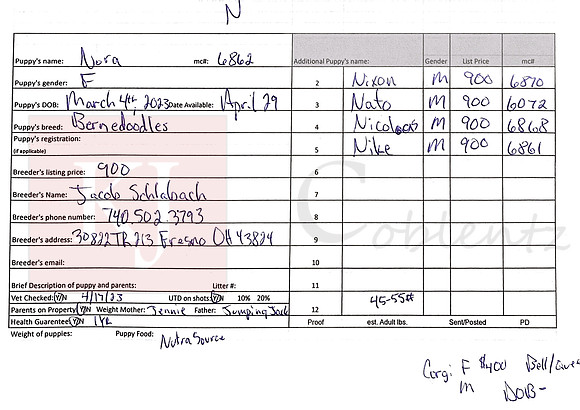 N
Puppy's name: Nora mc#: 6862 Additional Puppy's name: Gender List Price mc#
Puppy's gender: F 2 Nixon M 900 6870
Puppy's DOB: March 4th, 2023 Date Available: April 29 3 Nato M 900 6072
Puppy's breed: Bernedoodles 4 Nicolaas M 900 6868
Puppy's registration: (if applicable) 5 Nike M 900 6861
Breeder's listing price: 900 6
Breeder's Name: Jacob Schlabach 7
Breeder's phone number: 740.502.3793 8
Breeder's address: 30822 TR 213 Fresno OH 43824 9
Breeder's email: 10
Brief Description of puppy and parents: Litter #: 11
Vet Checked: Y/N 4/17/23 UTD on shots: Y/N 10% 20%
Parents on Property Y/N Weight Mother: Jennie Father: Jumping Jack 12 45-55#
Health Guarantee Y/N 1 YR Proof est. Adult lbs. Sent/Posted PD
Weight of puppies: Puppy Food: NutraSource
KJ Coblentz
Corgi F $400 Bell/
M DOB-